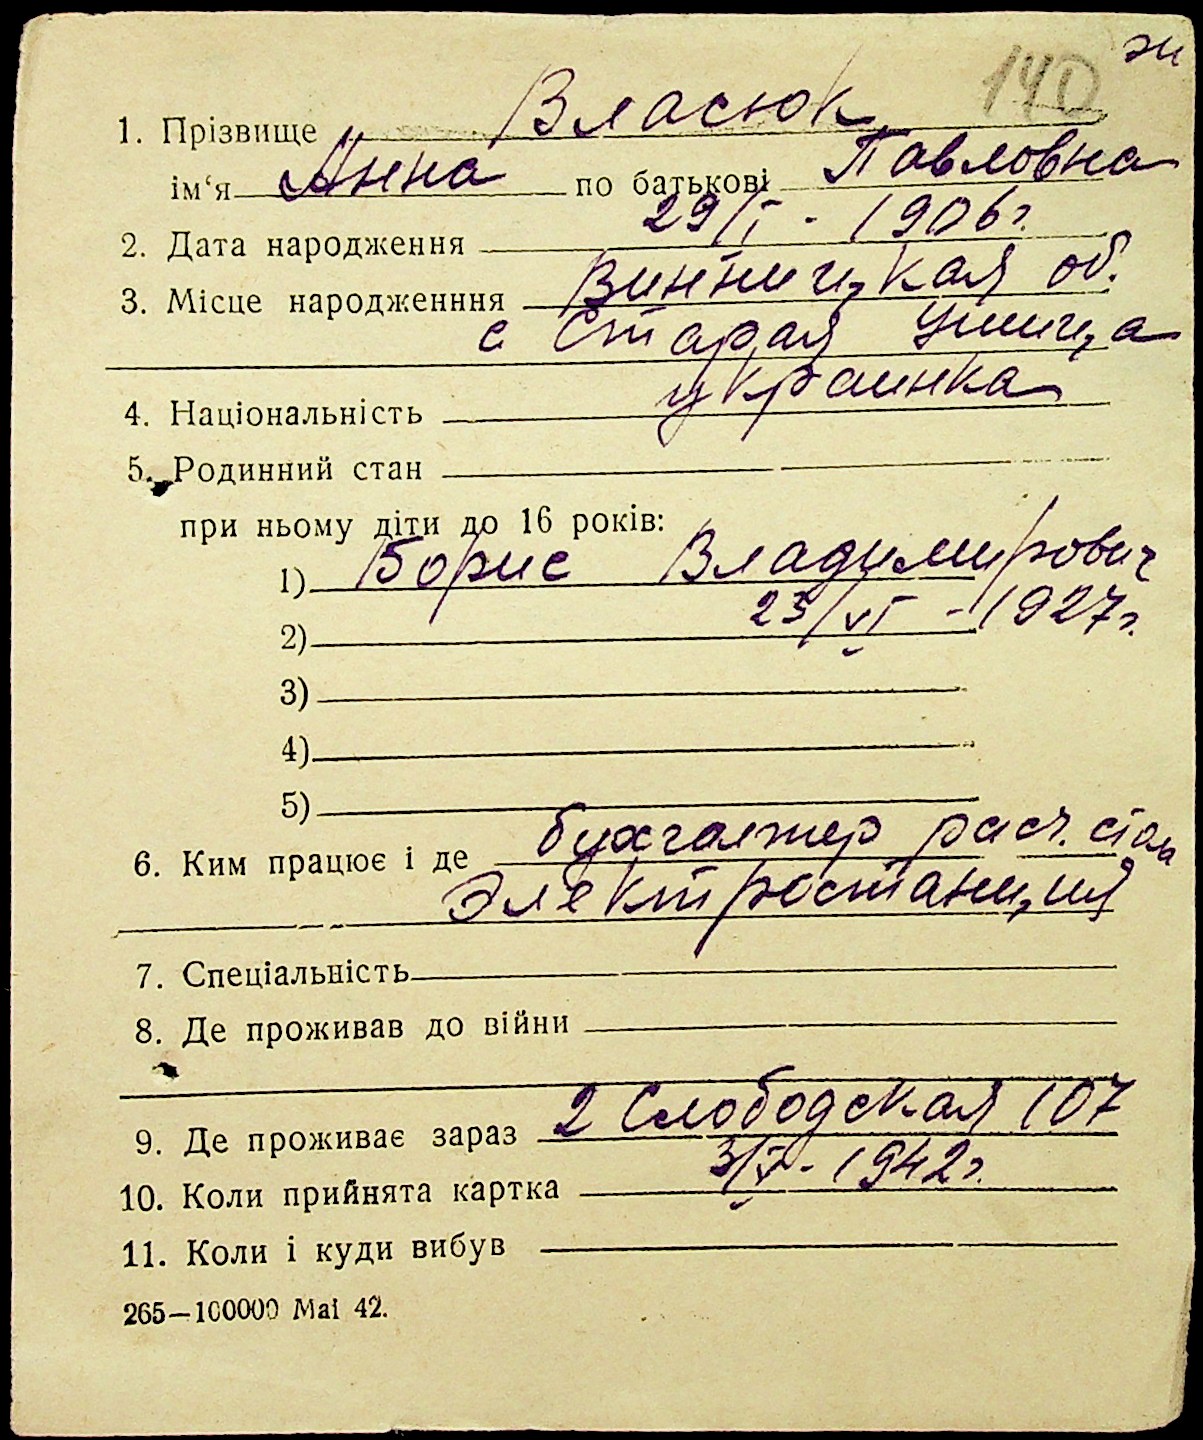 жн
140
1. Прізвище Власюк
ім‘я Анна по батькові Павловна
2. Дата народження 29/I - 1906 г.
3. Місце народженння Винницкая об.
с Старая Ушица
4. Національність украинка
5. Родинний стан
при ньому діти до 16 років:
1) Борис Владимирович
2) 23/VI - 1927 г.
3)
4)
5)
6. Ким працює і де бухгалтер расч. стола
Электростанция
7. Спеціальність
8. Де проживав до війни
9. Де проживає зараз 2 Слободская 107
10. Коли прийнята картка 3/V - 1942 г.
11. Коли і куди вибув
265—100000 Mai 42.